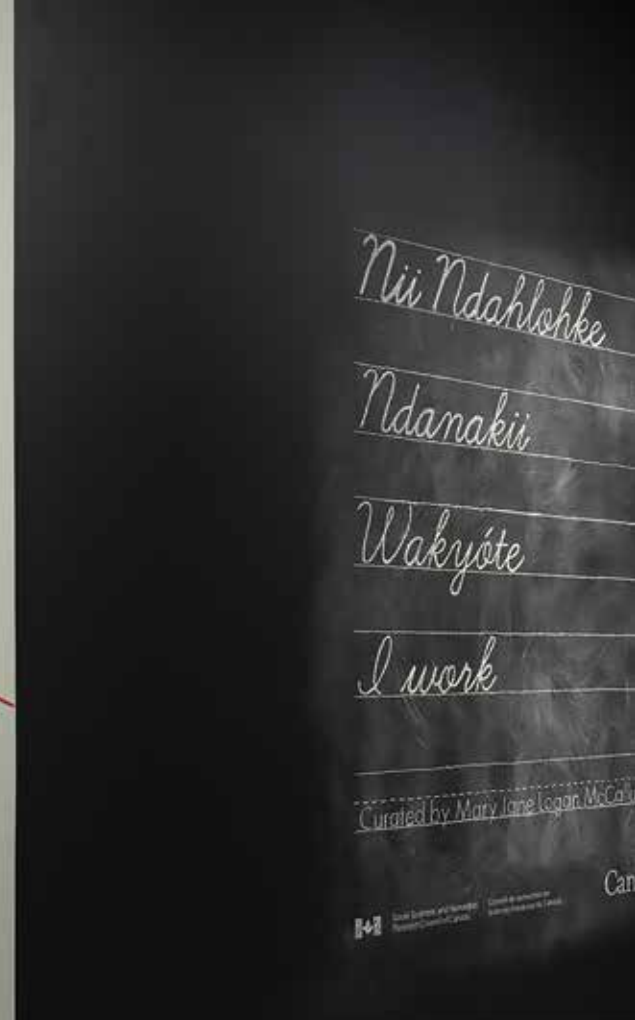 Nii Ndahlohke
Ndanakii
Wakyóte
I work
Curated by Mary Jane Logan McCallu
Can
Social Sciences and Humanities
Research Council of Canada
Conseil de recherches en
sciences humaines du Canada